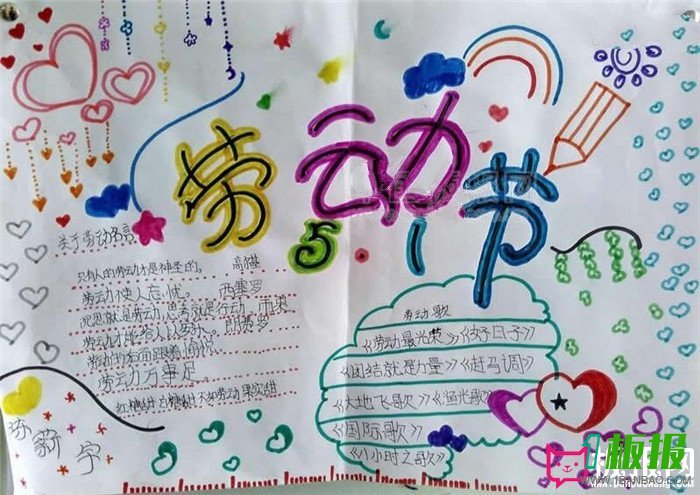 劳动节
5 1
关于劳动名言
只有人的劳动才是神圣的。 高尔基
劳动使人忘忧。 西塞罗
沉思就是劳动,思考就是行动 雨果
劳动
劳动的后面跟着愉悦
劳动万事足
红糖甜 白糖甜 不如劳动果实甜
劳动歌
《劳动最光荣》《好日子》
《团结就是力量》《赶马调》
《大地飞歌》《渔光歌》
《国际歌》
《八小时之歌》
板报
WWW.1BANBAO.COM